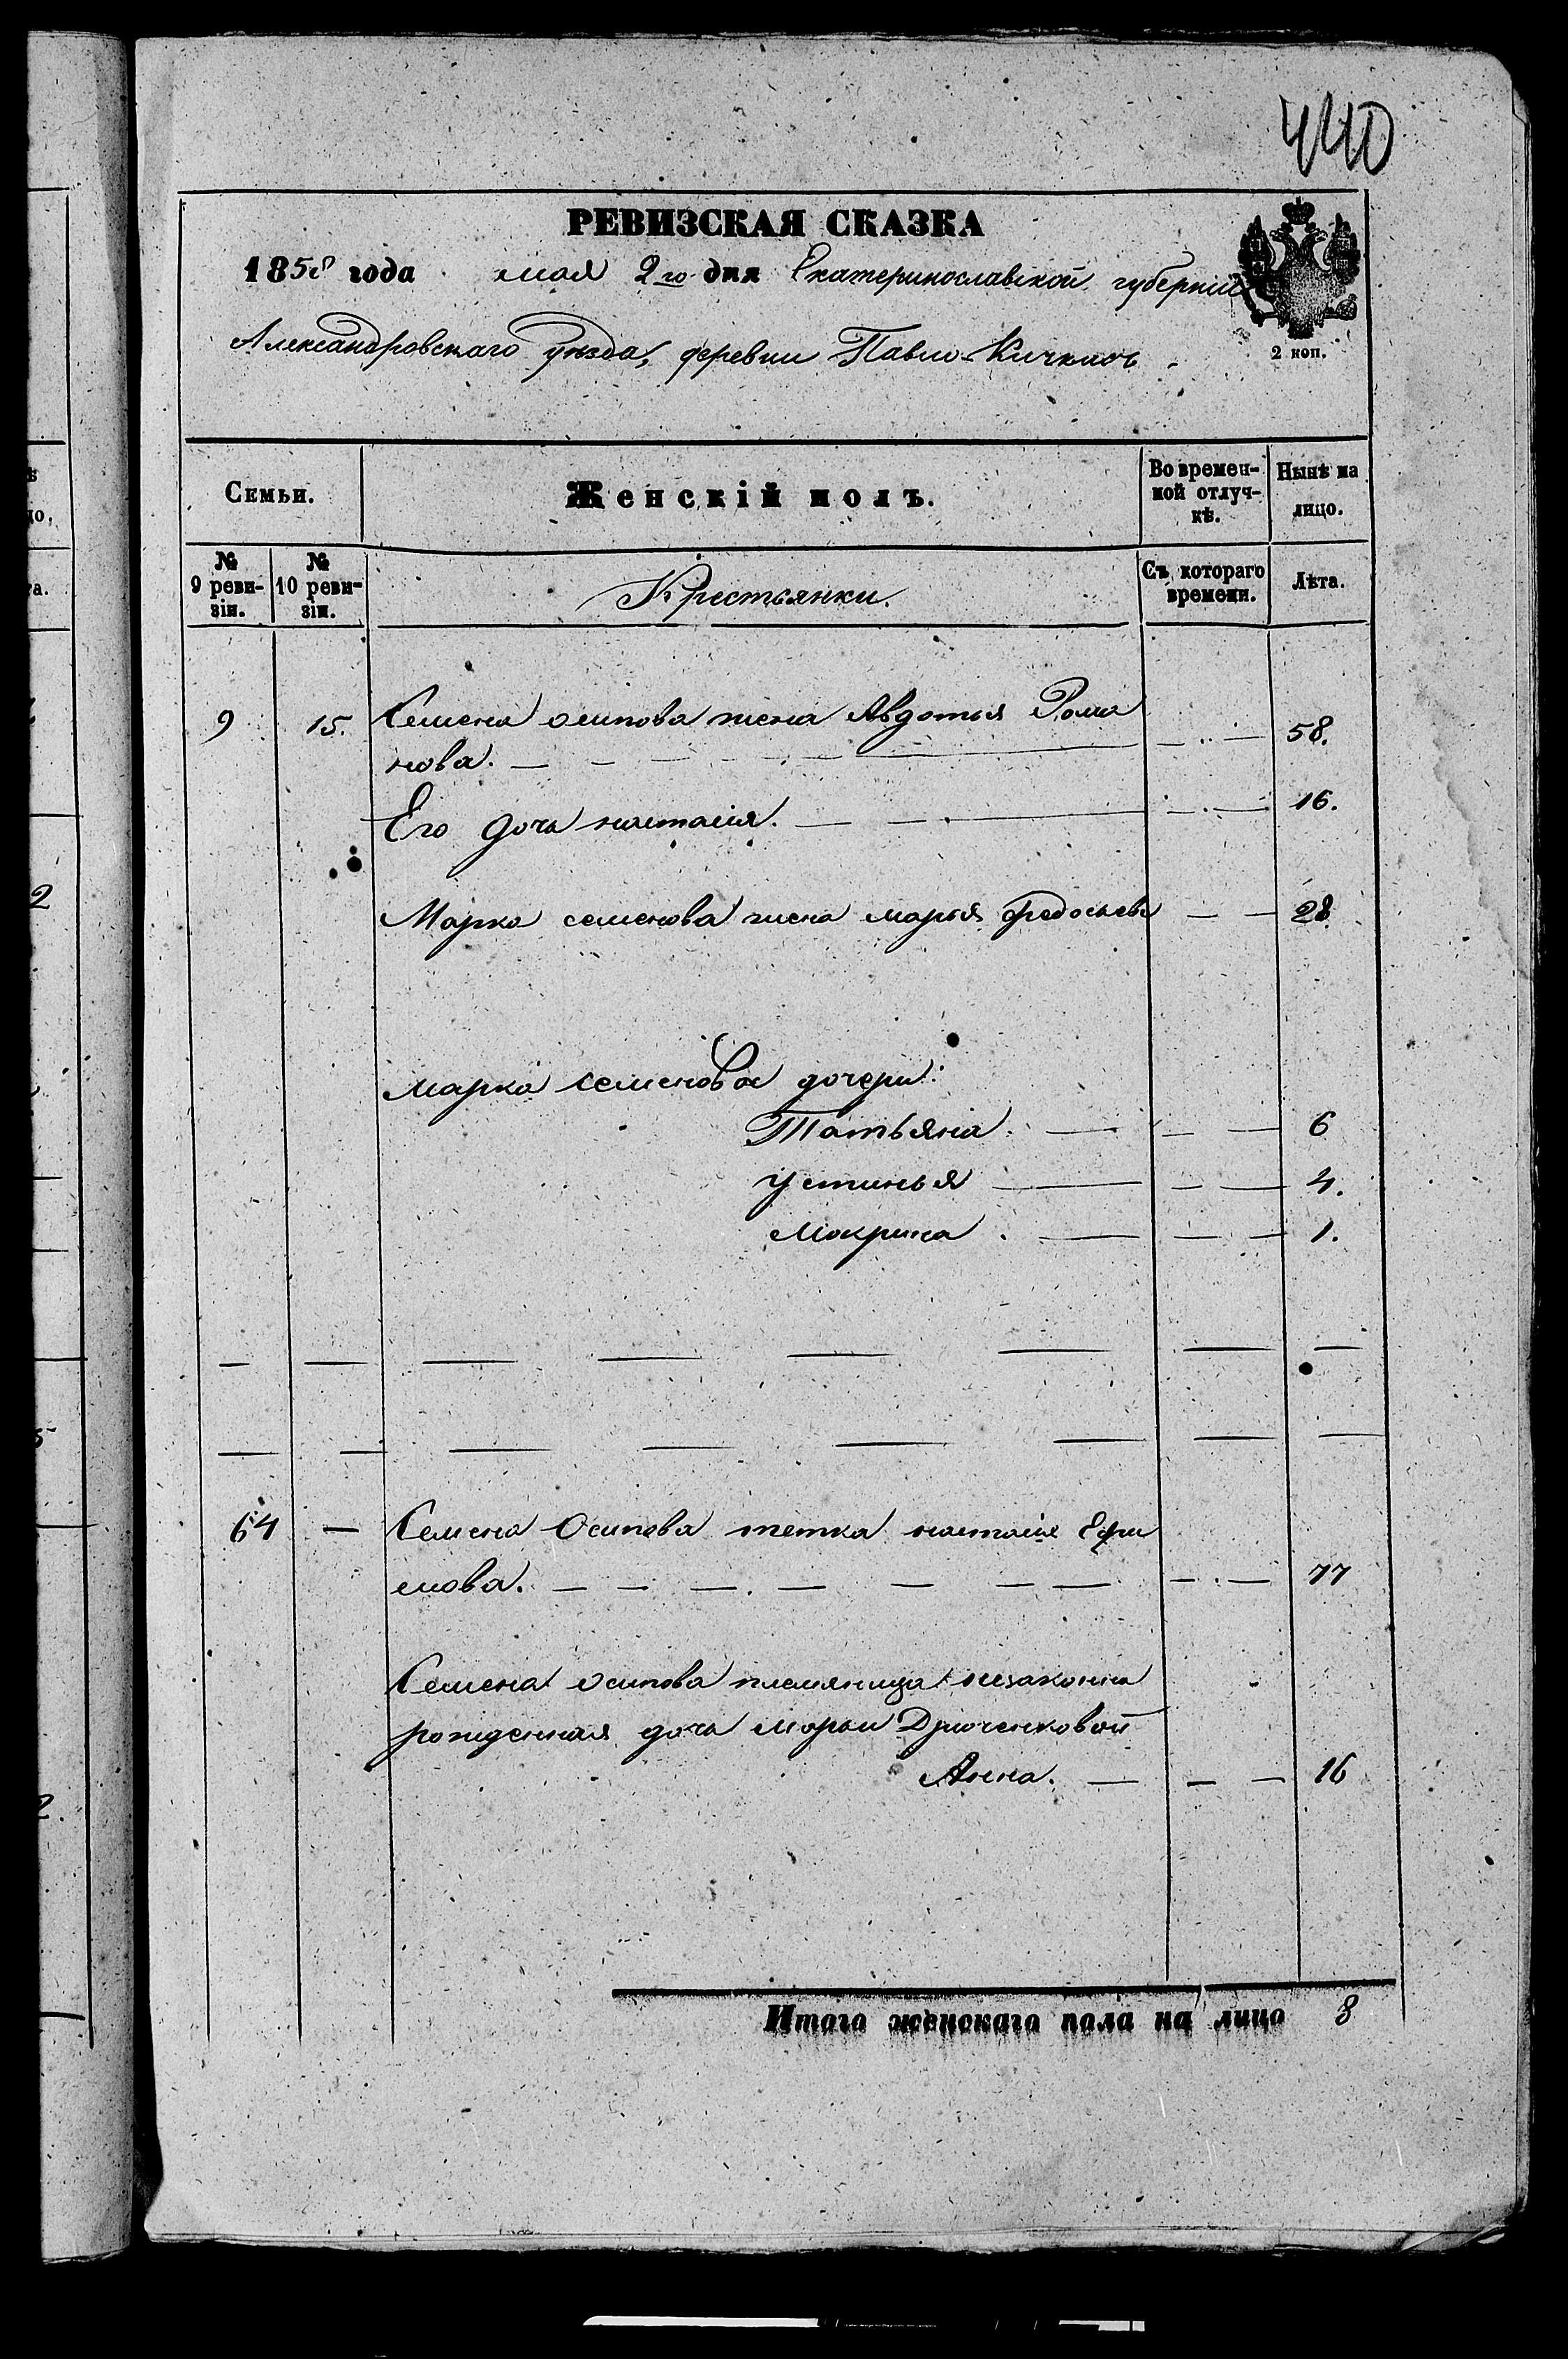 440
РЕВИЗСКАЯ СКАЗКА
1858 года мая 2го дня Екатеринославской губерніи
Александровскаго уѣзда, деревни Павло-Кичкасъ
2 коп.
Семьи. Женскій полъ. Во времен-ной отлуч-кѣ. Нынѣ на лицо.
№ 9 реви-зіи. № 10 реви-зіи. Крестьянки. Съ котораго времени. Лѣта.
9 15. Семена осипова жена Авдотья Рома
нова. 58.
Его дочь настасия. 16.
Марка семенова жена марья федосьева 28.
марка семенова дочери:
Татьяна. 6
устинья 4.
Макрина. 1.
64 — Семена Осипова тетка настасия Ефи
мова. 77
Семена осипова племяница незаконно
рожденная дочь марьи Дрюченковой
Анна. 16
Итого женскаго пола на лицо 8